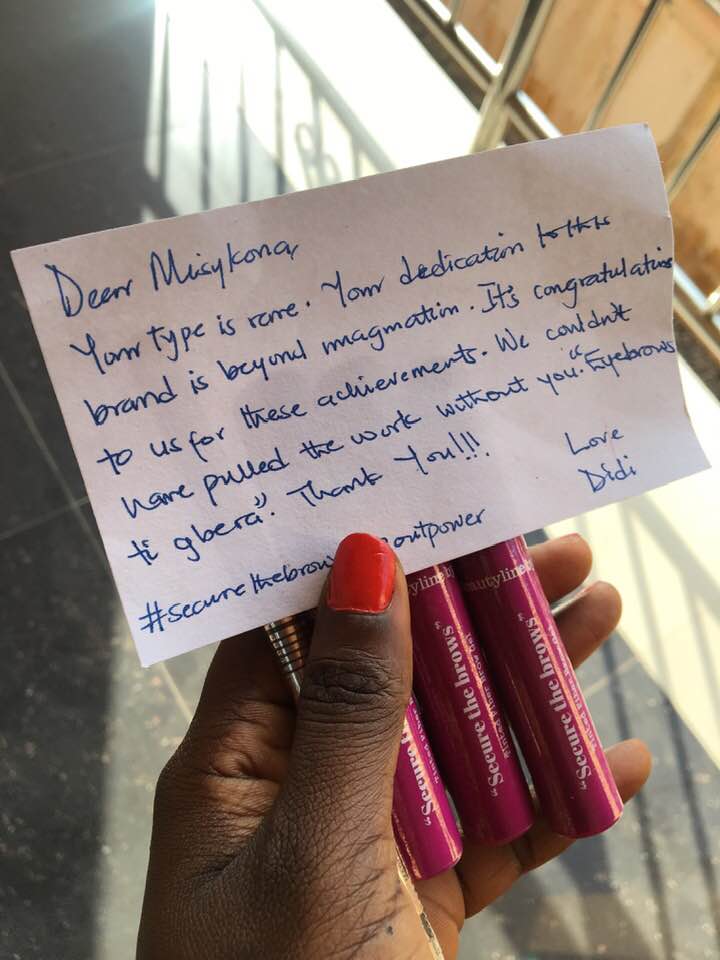 Dear Misykona,
Your type is rare. Your dedication to this
brand is beyond imagination. It's congratulations
to us for these achievements. We couldn't
have pulled the work without you. "Eyebrows
ti gbera". Thank You!!!
Love
Didi
#securethebrow outpower
eautyline by
"Secure the brows"
eautyline
"Secure the brows"
"Secure